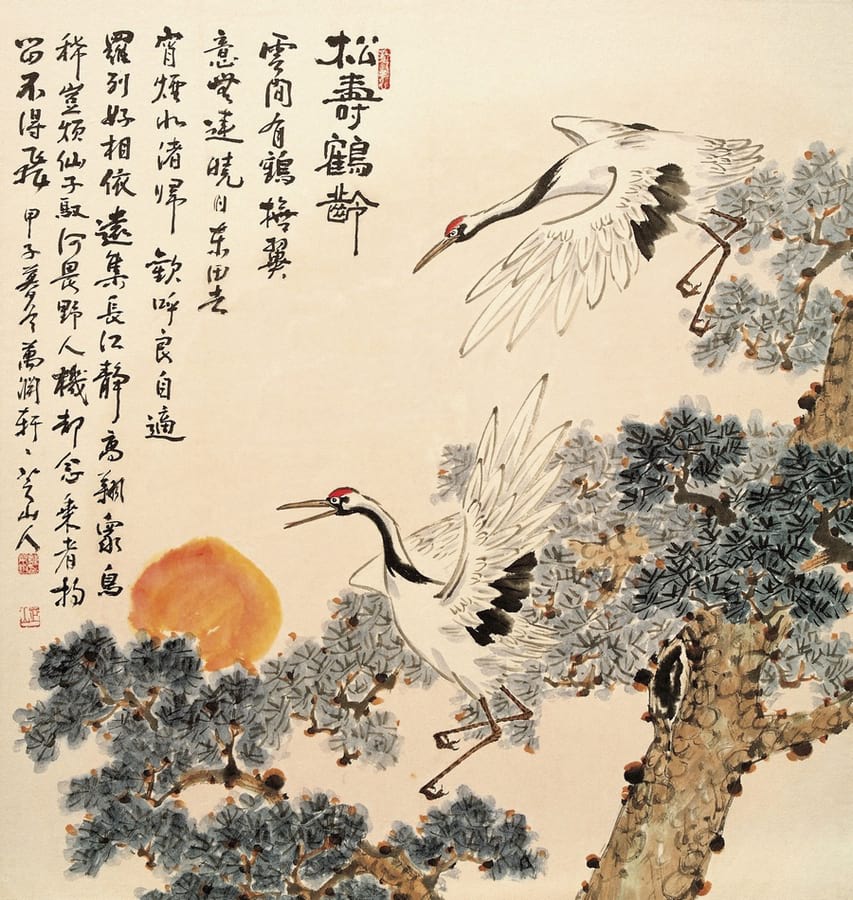 松壽鶴齡
雲間有鶴撫翼
意無違曉日東田去
宵煙北渚歸 歡呼良自適
羅列好相依遠集長江靜高翔衆鳥
稀豈煩仙子馭何畏野人機却念乘者拘
留不得飛 甲子暮冬萬澗軒 山人